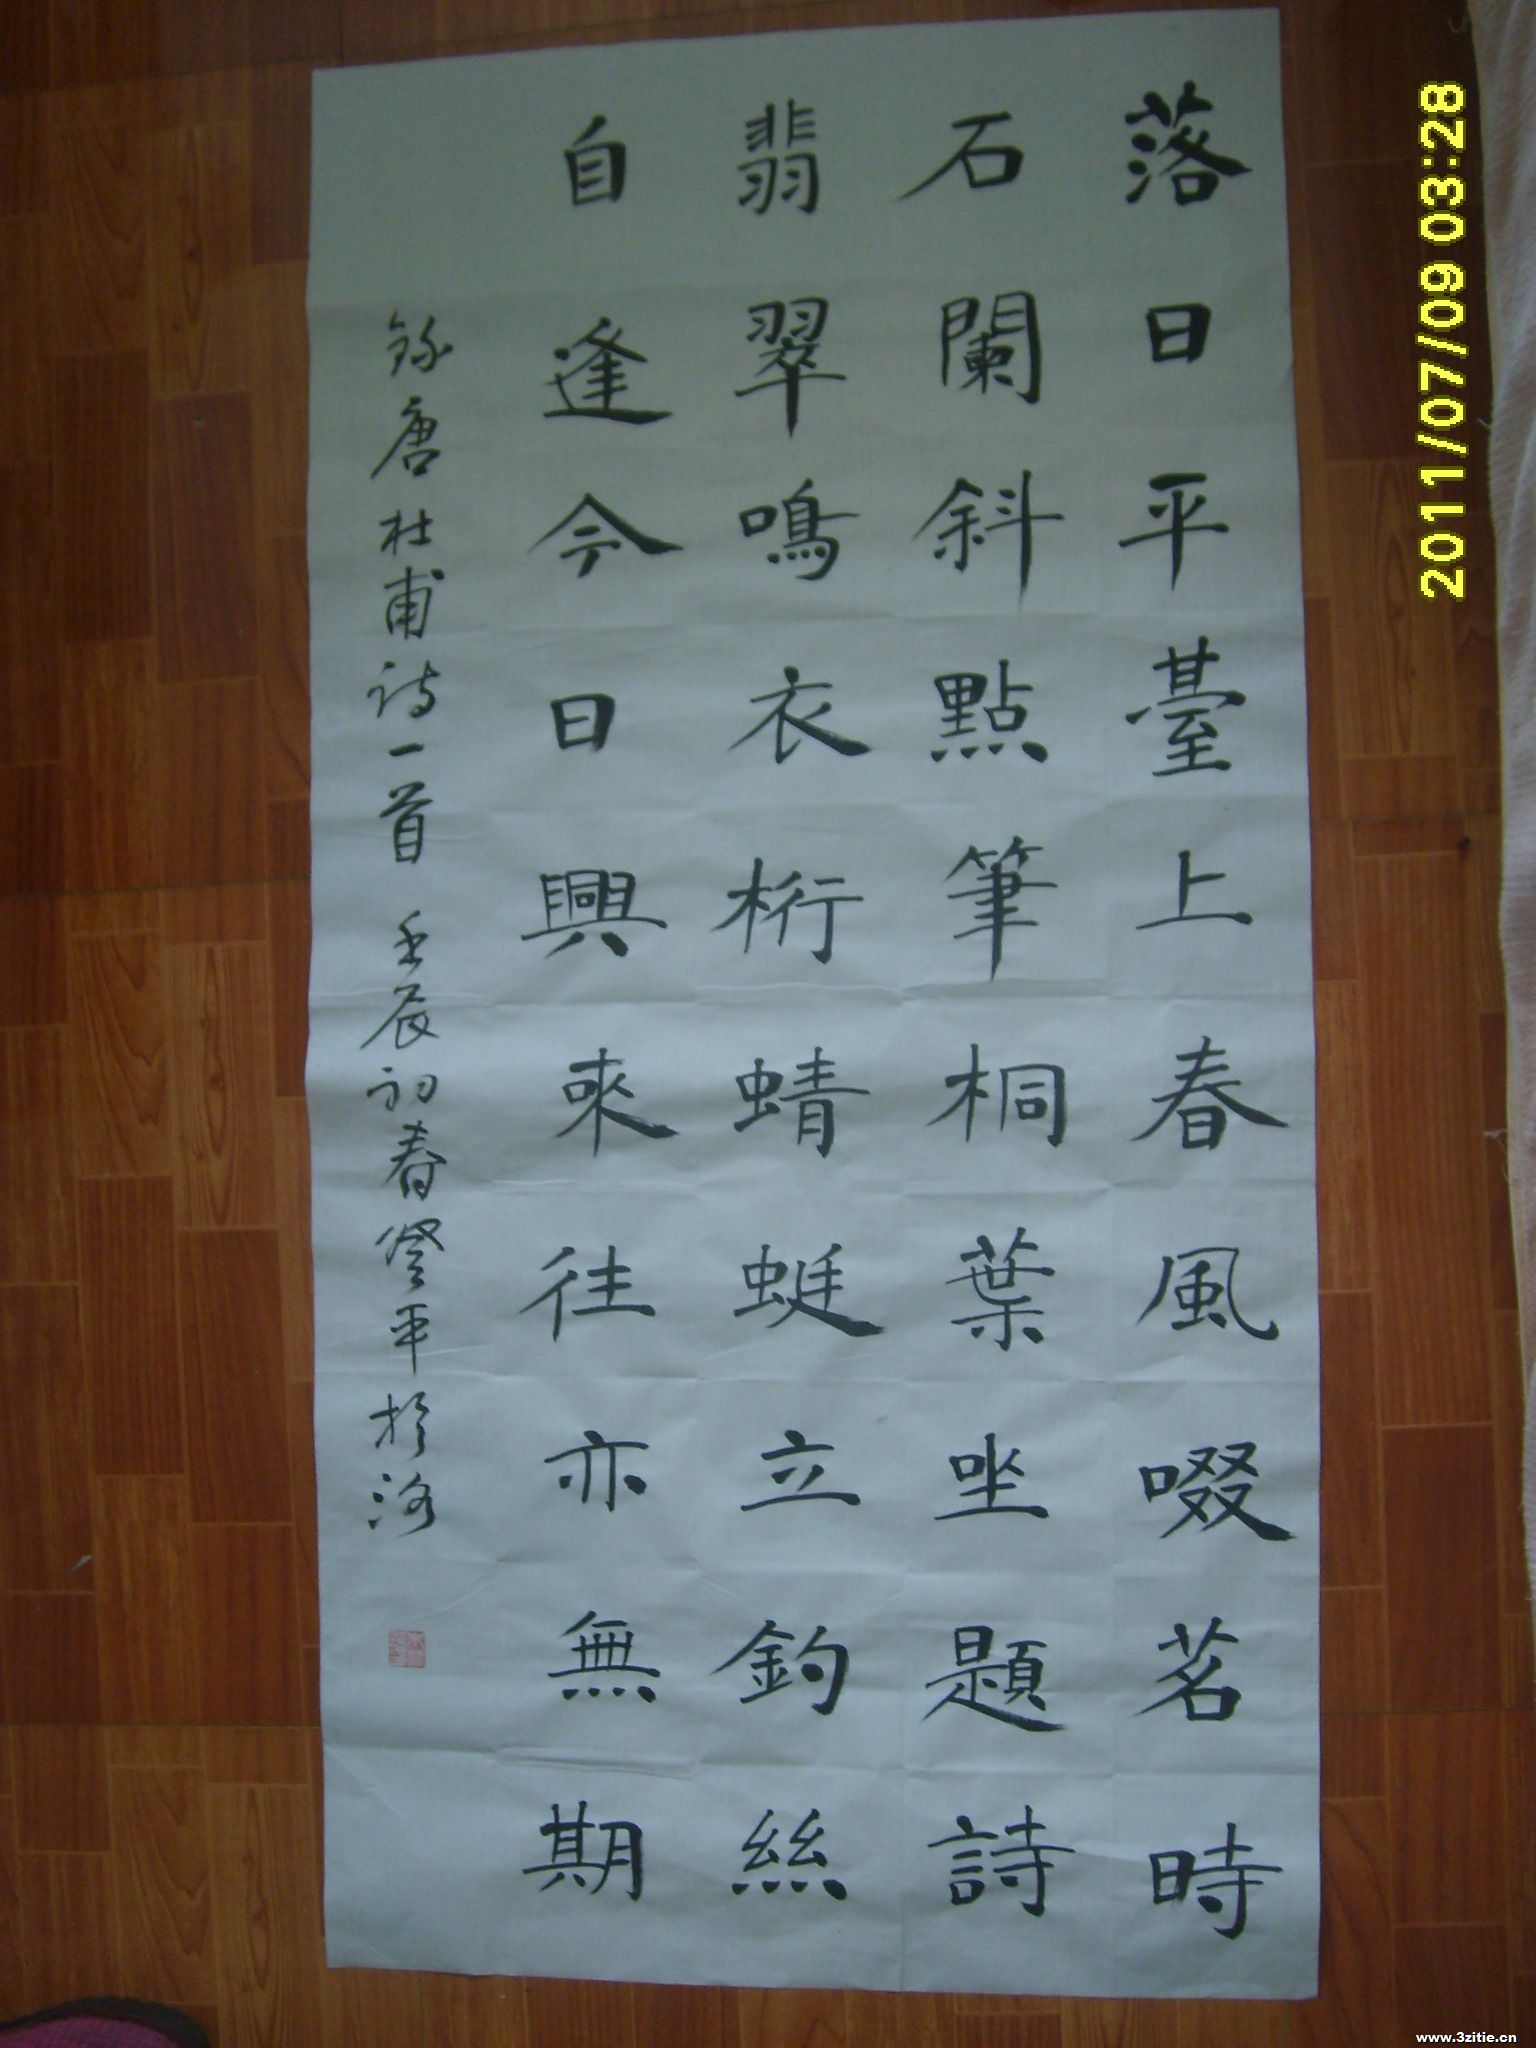 落日平臺上春風啜茗時
石闌斜點筆桐葉坐題詩
翡翠鳴衣桁蜻蜓立釣絲
自逢今日興來往亦無期
錄唐杜甫詩一首 壬辰初春登平於洛
2011/07/09 03:28
www.3zitie.cn